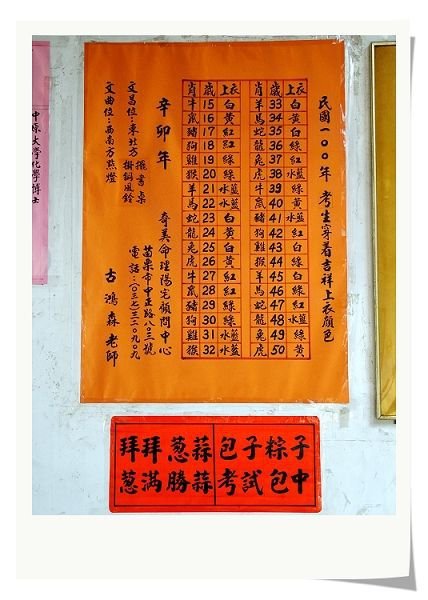 民國一○○年 考生穿着吉祥上衣顏色
肖 歲 上衣
羊 33 白
馬 34 黃
蛇 35 白
龍 36 綠
兔 37 紅
虎 38 水藍
牛 39 綠
鼠 40 黃
豬 41 水藍
狗 42 紅
雞 43 白
猴 44 紅
羊 45 白
馬 46 綠
蛇 47 紅
龍 48 水藍
兔 49 綠
虎 50 黃
肖 歲 上衣
牛 15 白
鼠 16 黃
豬 17 紅
狗 18 紅
雞 19 綠
猴 20 綠
羊 21 水藍
馬 22 水藍
蛇 23 白
龍 24 黃
兔 25 白
虎 26 黃
牛 27 紅
鼠 28 紅
豬 29 綠
狗 30 綠
雞 31 水藍
猴 32 水藍
辛卯年
奇美命理陽宅顧問中心
苗栗市中正路八○三號
電話：(○三七)三二○九○九
文昌位：東北方 擺書桌
掛銅風鈴
文曲位：西南方點燈
古鴻森 老師
中原大學化學博士
拜拜葱蒜 包子粽子
葱滿勝蒜 考試包中